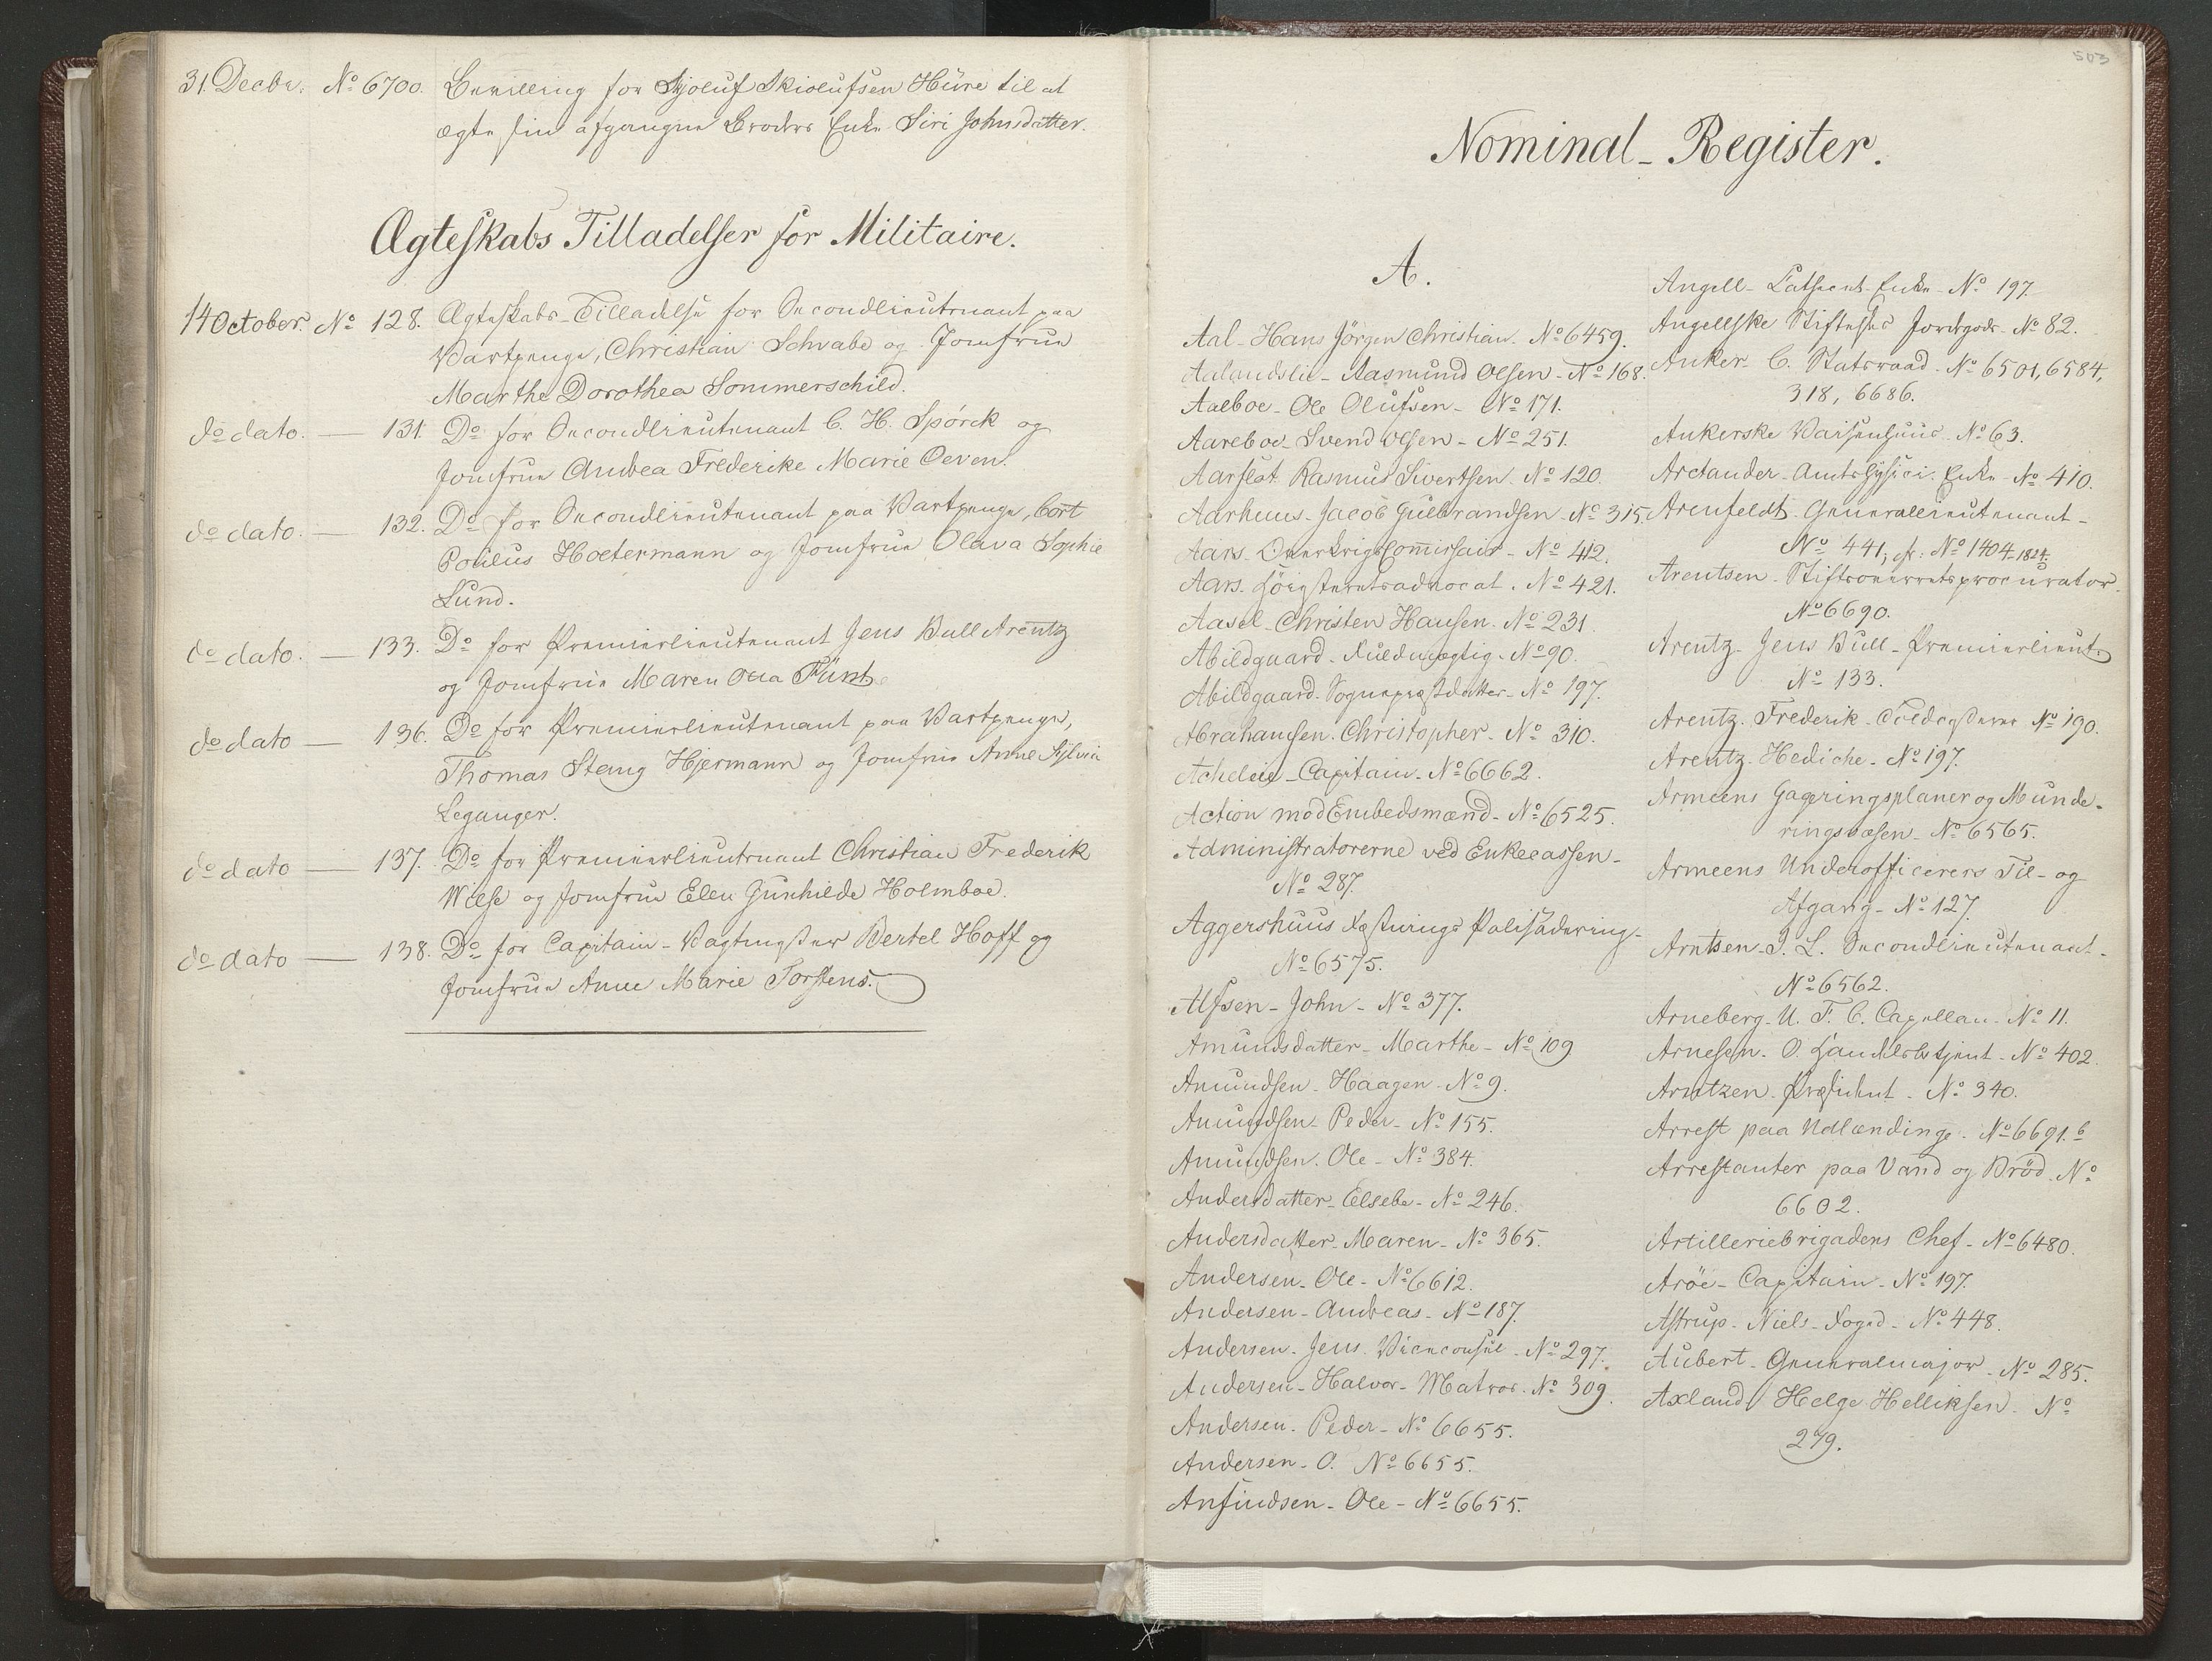 31. Decbr. No 6700. Bevilling for Skjoluf Skiolufsen Hüre til at
ægte sin afgangne Broders Enke Siri Johnsdatter.
Ægteskabs Tilladelser for Militaire.
14 October. No 128. Ægteskabs-Tilladelse for Secondlieutenant paa
Vartpenge, Christian Schvabe og Jomfrue
Marthe Dorothea Sommerschild.
do dato. — 131. Do for Secondlieutenant C. H. Spørck og
Jomfrue Andrea Frederike Marie Oeven.
do dato. — 132. Do for Secondlieutenant paa Vartpenge, Cort
Poulus Hoetermann og Jomfrue Olava Sophie
Lund.
do dato. — 133. Do for Premierlieutenant Jens Bull Arentz
og Jomfrue Maren Flint
do dato — 136. Do for Premierlieutenant paa Vartpenge,
Thomas Stang Hjermann og Jomfrue Anne Sylvia
Leganger.
do dato — 137. Do for Premierlieutenant Christian Frederik
Wilse og Jomfrue Elen Gunhilde Holmboe.
do dato — 138. Do for Capitain-Vagtmester Bertel Hoff og
Jomfrue Anne Marie Torstens.
503
Nominal-Register.
A.
Aal-Hans Jörgen Christian. No 6459.
Aalundslie-Aasmund Olsen-No 168.
Aalboe-Ole Olufsen-No 171.
Aareboe-Svend Olsen-No 251.
Aarslot Rasmus Sivertsen. No 120.
Aarhuus-Jacob Gulbrandsen-No 315.
Aars-Overkrigscommissair-No 412.
Aars. Höiesteretsadvocat. No 421.
Aasel-Christen Hansen. No 231.
Abildgaard. Fuldmægtig. No 90.
Abildgaard. Sognepræstdatter-No 197.
Abrahamsen. Christopher. No 310.
Acheleie-Capitain-No 6662.
Action mod Embedsmænd-No 6525.
Administratorerne ved Enkecassen-
No 287.
Aggershuus Fæstnings Palisadering-
No 6575.
Alfsen-John-No 377.
Amundsdatter-Marthe-No 109
Amundsen-Haagen-No 9.
Amundsen-Peder-No 155.
Amundsen. Ole-No 384.
Andersdatter-Elsebe-No 246.
Andersdatter-Maren-No 365.
Andersen-Ole-No 6612.
Andersen-Andreas-No 187.
Andersen-Jens. Viceconsul-No 297.
Andersen-Halvor-Matros. No 309.
Andersen. Peder-No 6655.
Andersen-O. No 6655.
Anfindsen-Ole-No 6655.
Angell- Enke-No 197.
Angellske Stiftelses Jordegods-No 82.
Anker-C. Statsraad-No 6501, 6584,
318, 6686.
Ankerske Vaisenhuus-No 63.
Arctander-Amtsphysici Enke-No 410.
Arenfeldt-Generallieutenant-
No 441, cfr: No 1404-1824.
Arentsen-Stiftsoverretsprocurator
No 6690.
Arentz-Jens Bull-Premierlieut.
No 133.
Arentz. Frederik-Toldcasserer No 190.
Arentz. Hediche-No 197.
Armeens Gageringsplaner og Munde-
ringsvæsen-No 6565.
Armeens Underofficerers Til-og
Afgang-No 127.
Arntsen-J. L. Secondlieutenant-
No 6562.
Arneberg-U. F. C. Capellan-No 11.
Arnesen-O. Handelsbetjent-No 402.
Arntzen. Præsident-No 340.
Arrest paa Udlændinge-No 6691. b
Arrestanter paa Vand og Bröd-No
6602.
Artilleriebrigadens Chef-No 6480.
Aröe-Capitain-No 197.
Astrup-Niels-Foged-No 448.
Aubert-Generalmajor-No 285.
Axland Helge Helliksen. No
279.